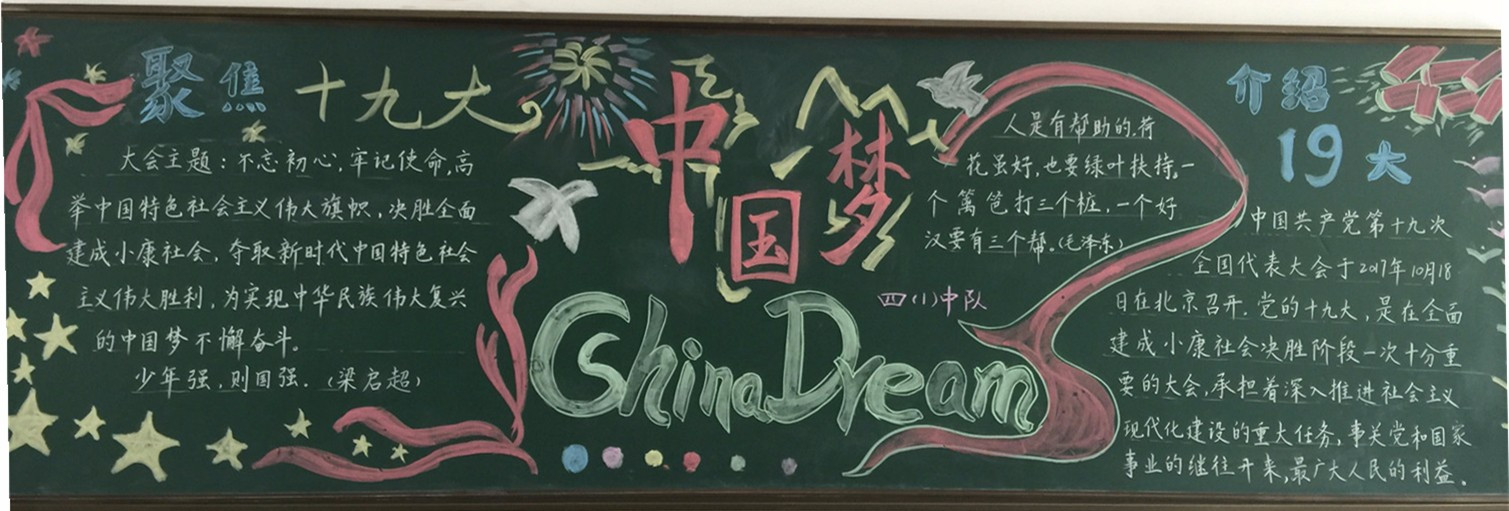 聚焦十九大
大会主题：不忘初心，牢记使命，高
举中国特色社会主义伟大旗帜，决胜全面
建成小康社会，夺取新时代中国特色社会
主义伟大胜利，为实现中华民族伟大复兴
的中国梦不懈奋斗。
少年强，则国强.（梁启超）
中国梦
四(1)中队
China Dream
人是有帮助的.荷
花虽好，也要绿叶扶持.一
个篱笆打三个桩，一个好
汉要有三个帮.(毛泽东)
介绍
19大
中国共产党第十九次
全国代表大会于2017年10月18
日在北京召开.党的十九大，是在全面
建成小康社会决胜阶段一次十分重
要的大会，承担着深入推进社会主义
现代化建设的重大任务，事关党和国家
事业的继往开来，最广大人民的利益.